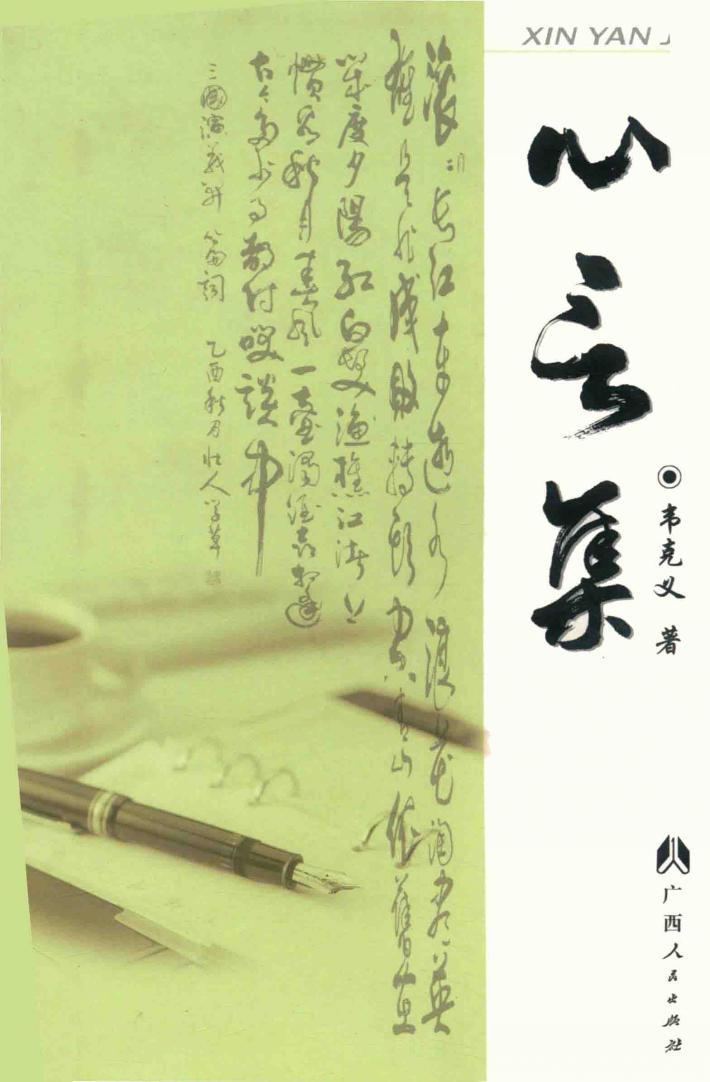 XIN YAN J
心言集
韦克义 著
广西人民出版社
滚〻长江东逝水浪花淘尽英
雄是非成敗轉頭空青山依舊在
几度夕陽红白髮渔樵江渚上
慣看秋月春風一壶濁酒喜相逢
古今多少事都付笑談中
三國演義开篇詞 乙酉秋月壮人学草